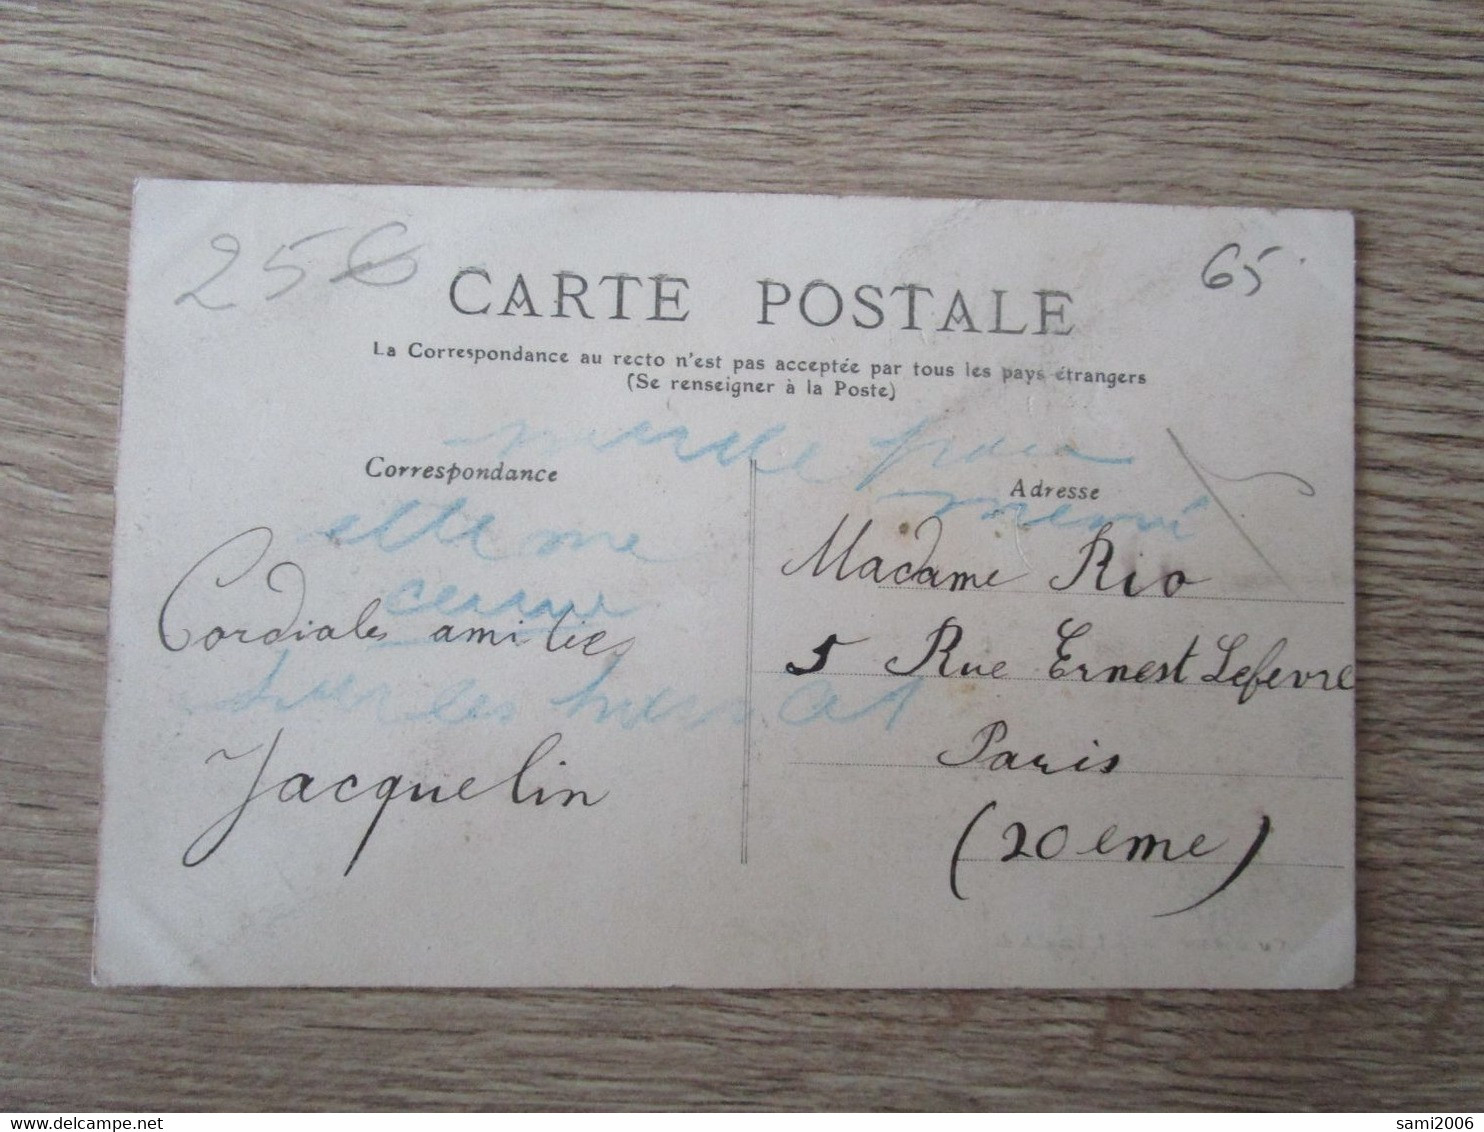 25€
65
CARTE POSTALE
La Correspondance au recto n'est pas acceptée par tous les pays étrangers
(Se renseigner à la Poste)
Correspondance
Adresse
elle me
Cordiales amitiés
Jacquelin
Madame Rio
5 Rue Ernest Lefevre
Paris
(20eme)
sami2006